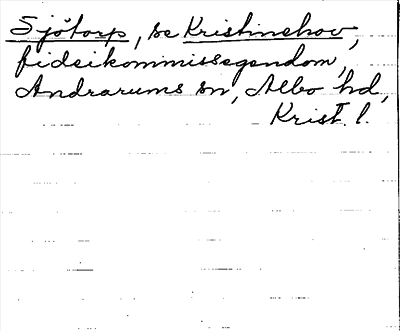 Sjötorp, se Kristinehov,
fideikommissegendom,
Andrarums sn, Albo hd,
Krist. l.